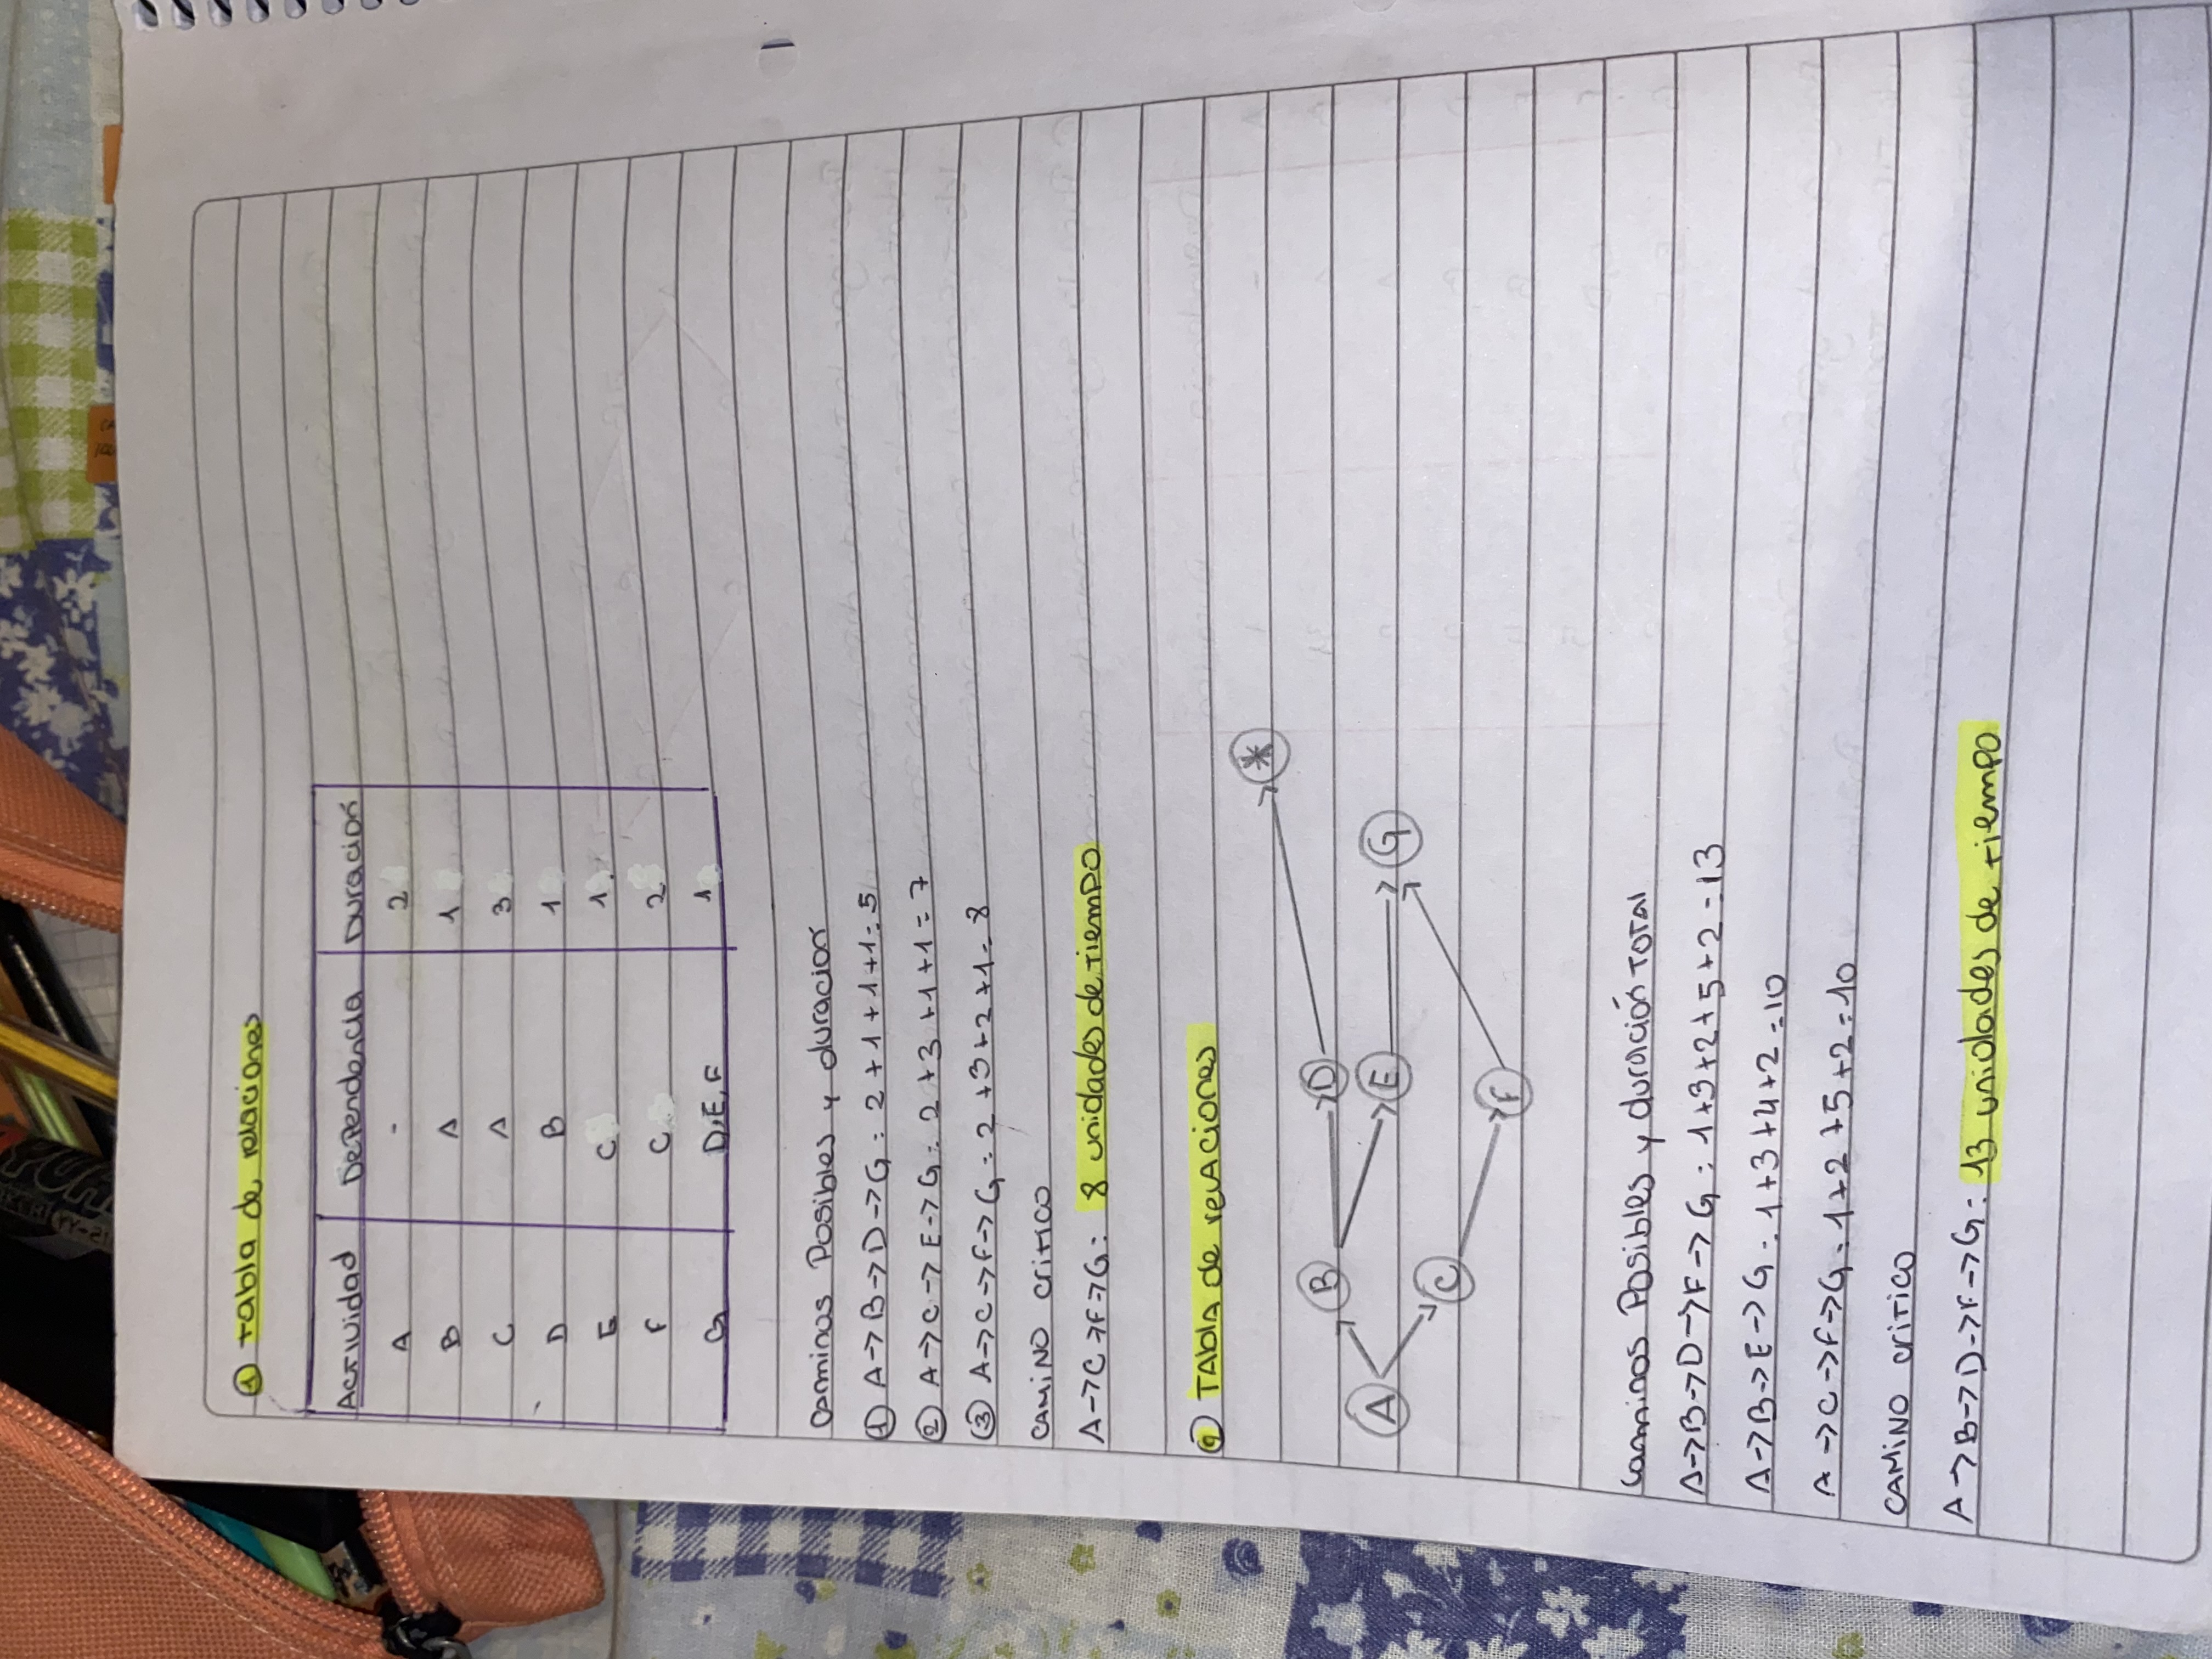 ① tabla de relaciones
Actividad Dependencia Duración
A - 2
B A 1
C A 3
D B 1
E C 1.
F C 2
G D,E,F 1
Caminos Posibles y duracion
① A→B→D→G: 2+1+1+1=5
② A→C→E→G: 2+3+1+1=7
③ A→C→F→G: 2+3+2+1=8
CAMINO critico
A→C→F→G: 8 unidades de tiempo
② TAblA de relAciones
*
B D
A E G
C
F
Caminos Posibles y duración TOTAl
A→B→D→F→G: 1+3+2+5+2=13
A→B→E→G: 1+3+4+2=10
A→C→F→G: 1+2+5+2=10
CAMINO critico
A→B→D→F→G: 13 unidades de tiempo